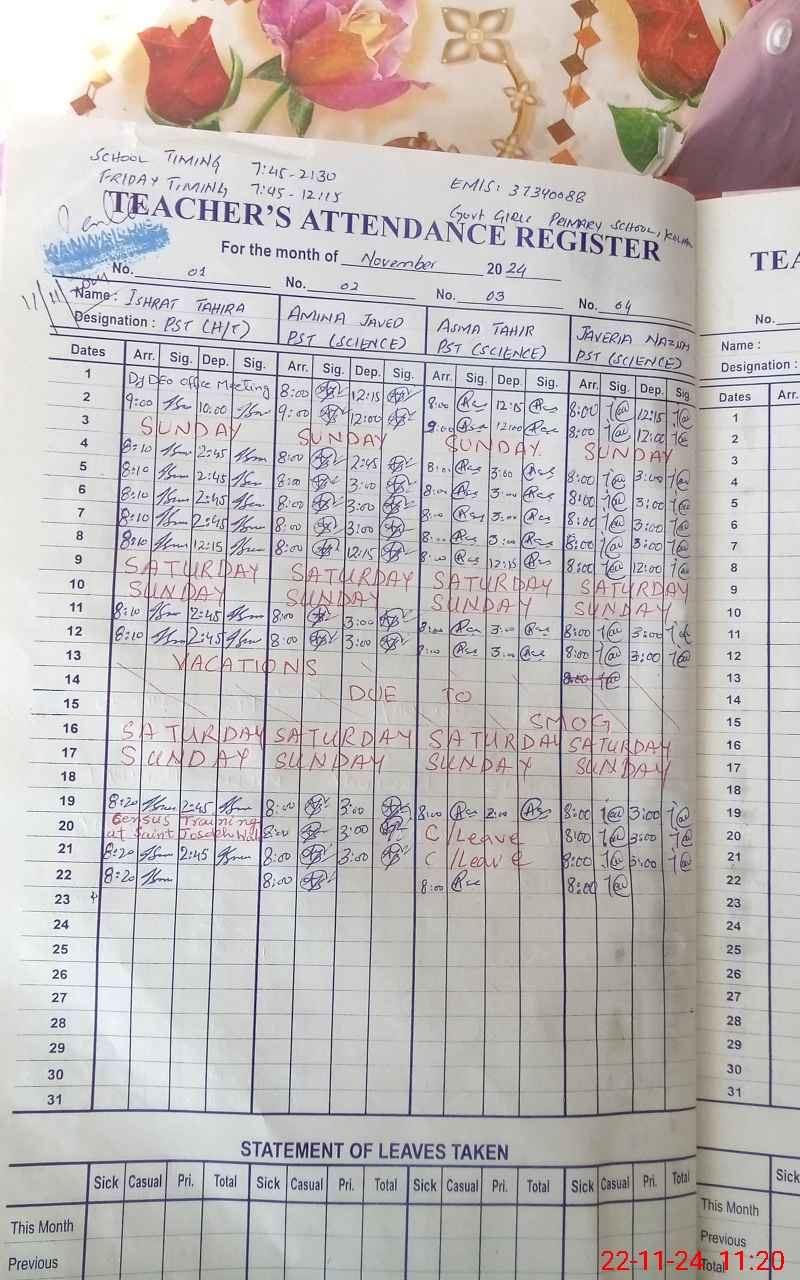 SCHOOL TIMING 7:45-2:30
FRIDAY TIMING 7:45-12:15
EMIS: 37340088
GOVT GIRLS PRIMARY SCHOOL,
TEACHER'S ATTENDANCE REGISTER
For the month of November 2024
No. 01 No. 02 No. 03 No. 04
Name: ISHRAT TAHIRA AMINA JAVED ASMA TAHIR JAVERIA
Designation: PST (H/T) PST (SCIENCE) PST (SCIENCE) PST (SCIENCE)
Dates Arr. Sig. Dep. Sig. Arr. Sig. Dep. Sig. Arr. Sig. Dep. Sig. Arr. Sig. Dep. Sig.
1 DEO office Meeting 8:00 12:15 8:00 12:15 8:00 12:15
2 9:00 10:00 9:00 12:00 9:00 12:00 8:00 12:00
3 SUNDAY SUNDAY SUNDAY SUNDAY
4 8:10 2:45 8:00 2:45 8:00 3:00 8:00 3:00
5 8:10 2:45 8:00 3:00 8:00 3:00 8:00 3:00
6 8:10 2:45 8:00 3:00 8:00 3:00 8:00 3:00
7 8:10 2:45 8:00 3:00 8:00 3:00 8:00 3:00
8 8:10 12:15 8:00 12:15 8:00 12:15 8:00 12:00
9 SATURDAY SATURDAY SATURDAY SATURDAY
10 SUNDAY SUNDAY SUNDAY SUNDAY
11 8:10 2:45 8:00 3:00 8:00 3:00 8:00 3:00
12 8:10 2:45 8:00 3:00 8:00 3:00 8:00 3:00
13 VACATIONS
14 DUE TO
15 SMOG
16 SATURDAY SATURDAY SATURDAY SATURDAY
17 SUNDAY SUNDAY SUNDAY SUNDAY
18
19 8:20 2:45 8:00 3:00 8:00 8:00 3:00
20 Census Training at Saint Joseph 8:00 3:00 C/Leave 8:00 3:00
21 8:20 2:45 8:00 3:00 C/Leave 8:00 3:00
22 8:20 8:00 8:00 8:00
23
24
25
26
27
28
29
30
31
STATEMENT OF LEAVES TAKEN
Sick Casual Pri. Total Sick Casual Pri. Total Sick Casual Pri. Total Sick Casual Pri. Total
This Month
Previous
TEA
No.
Name :
Designation :
Dates Arr.
1
2
3
4
5
6
7
8
9
10
11
12
13
14
15
16
17
18
19
20
21
22
23
24
25
26
27
28
29
30
31
Sick
This Month
Previous
Total
22-11-24 11:20